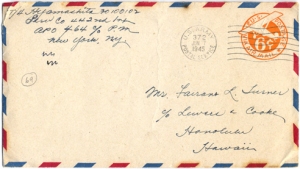 T/4 M. Yamashita 30100102
Serv. Co 442nd Inf
APO #464 c/o P.M.
New York, N.Y.
1945
6¢
64
Mrs. Farrant L. Turner
c/o Lewers & Cooke
Honolulu
Hawaii